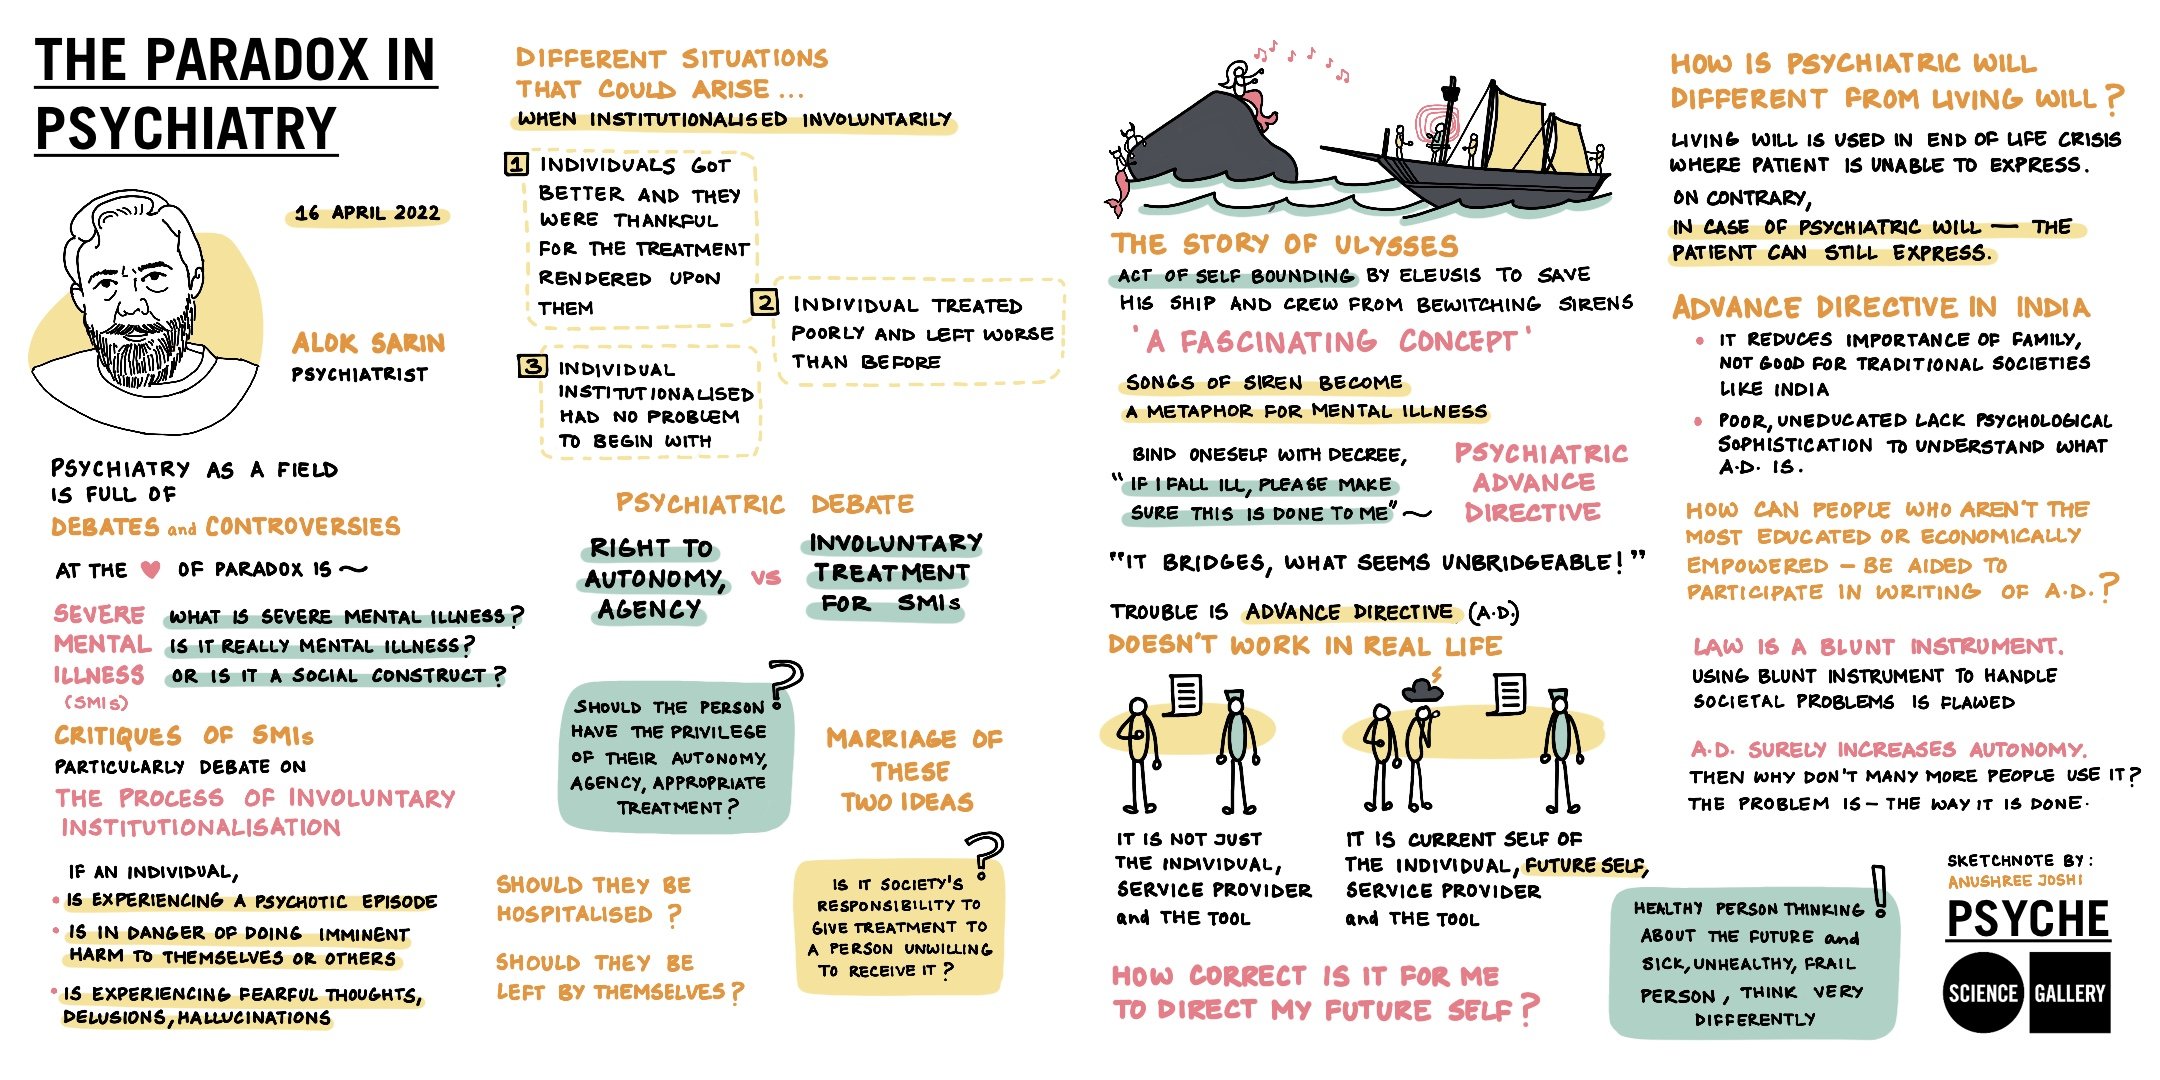 THE PARADOX IN
PSYCHIATRY
16 APRIL 2022
ALOK SARIN
PSYCHIATRIST
PSYCHIATRY AS A FIELD
IS FULL OF
DEBATES and CONTROVERSIES
AT THE ♥ OF PARADOX IS ~
SEVERE
MENTAL
ILLNESS
(SMIs)
WHAT IS SEVERE MENTAL ILLNESS?
IS IT REALLY MENTAL ILLNESS?
OR IS IT A SOCIAL CONSTRUCT?
CRITIQUES OF SMIs
PARTICULARLY DEBATE ON
THE PROCESS OF INVOLUNTARY
INSTITUTIONALISATION
IF AN INDIVIDUAL,
• IS EXPERIENCING A PSYCHOTIC EPISODE
• IS IN DANGER OF DOING IMMINENT
HARM TO THEMSELVES OR OTHERS
• IS EXPERIENCING FEARFUL THOUGHTS,
DELUSIONS, HALLUCINATIONS
DIFFERENT SITUATIONS
THAT COULD ARISE ...
WHEN INSTITUTIONALISED INVOLUNTARILY
1 INDIVIDUALS GOT
BETTER AND THEY
WERE THANKFUL
FOR THE TREATMENT
RENDERED UPON
THEM
2 INDIVIDUAL TREATED
POORLY AND LEFT WORSE
THAN BEFORE
3 INDIVIDUAL
INSTITUTIONALISED
HAD NO PROBLEM
TO BEGIN WITH
PSYCHIATRIC DEBATE
RIGHT TO
AUTONOMY,
AGENCY
VS
INVOLUNTARY
TREATMENT
FOR SMIs
SHOULD THE PERSON
HAVE THE PRIVILEGE
OF THEIR AUTONOMY,
AGENCY, APPROPRIATE
TREATMENT?
?
MARRIAGE OF
THESE
TWO IDEAS
SHOULD THEY BE
HOSPITALISED ?
SHOULD THEY BE
LEFT BY THEMSELVES?
IS IT SOCIETY'S
RESPONSIBILITY TO
GIVE TREATMENT TO
A PERSON UNWILLING
TO RECEIVE IT ?
?
THE STORY OF ULYSSES
ACT OF SELF BOUNDING BY ELEUSIS TO SAVE
HIS SHIP AND CREW FROM BEWITCHING SIRENS
'A FASCINATING CONCEPT'
SONGS OF SIREN BECOME
A METAPHOR FOR MENTAL ILLNESS
BIND ONESELF WITH DECREE,
"IF I FALL ILL, PLEASE MAKE
SURE THIS IS DONE TO ME" ~
PSYCHIATRIC
ADVANCE
DIRECTIVE
"IT BRIDGES, WHAT SEEMS UNBRIDGEABLE!"
TROUBLE IS ADVANCE DIRECTIVE (A.D.)
DOESN'T WORK IN REAL LIFE
IT IS NOT JUST
THE INDIVIDUAL,
SERVICE PROVIDER
and THE TOOL
IT IS CURRENT SELF OF
THE INDIVIDUAL, FUTURE SELF,
SERVICE PROVIDER
and THE TOOL
HOW CORRECT IS IT FOR ME
TO DIRECT MY FUTURE SELF?
HOW IS PSYCHIATRIC WILL
DIFFERENT FROM LIVING WILL?
LIVING WILL IS USED IN END OF LIFE CRISIS
WHERE PATIENT IS UNABLE TO EXPRESS.
ON CONTRARY,
IN CASE OF PSYCHIATRIC WILL — THE
PATIENT CAN STILL EXPRESS.
ADVANCE DIRECTIVE IN INDIA
• IT REDUCES IMPORTANCE OF FAMILY,
NOT GOOD FOR TRADITIONAL SOCIETIES
LIKE INDIA
• POOR, UNEDUCATED LACK PSYCHOLOGICAL
SOPHISTICATION TO UNDERSTAND WHAT
A.D. IS.
HOW CAN PEOPLE WHO AREN'T THE
MOST EDUCATED OR ECONOMICALLY
EMPOWERED — BE AIDED TO
PARTICIPATE IN WRITING OF A.D.?
LAW IS A BLUNT INSTRUMENT.
USING BLUNT INSTRUMENT TO HANDLE
SOCIETAL PROBLEMS IS FLAWED
A.D. SURELY INCREASES AUTONOMY.
THEN WHY DON'T MANY MORE PEOPLE USE IT?
THE PROBLEM IS — THE WAY IT IS DONE.
HEALTHY PERSON THINKING
ABOUT THE FUTURE and
SICK, UNHEALTHY, FRAIL
PERSON, THINK VERY
DIFFERENTLY
!
SKETCHNOTE BY:
ANUSHREE JOSHI
PSYCHE
SCIENCE GALLERY